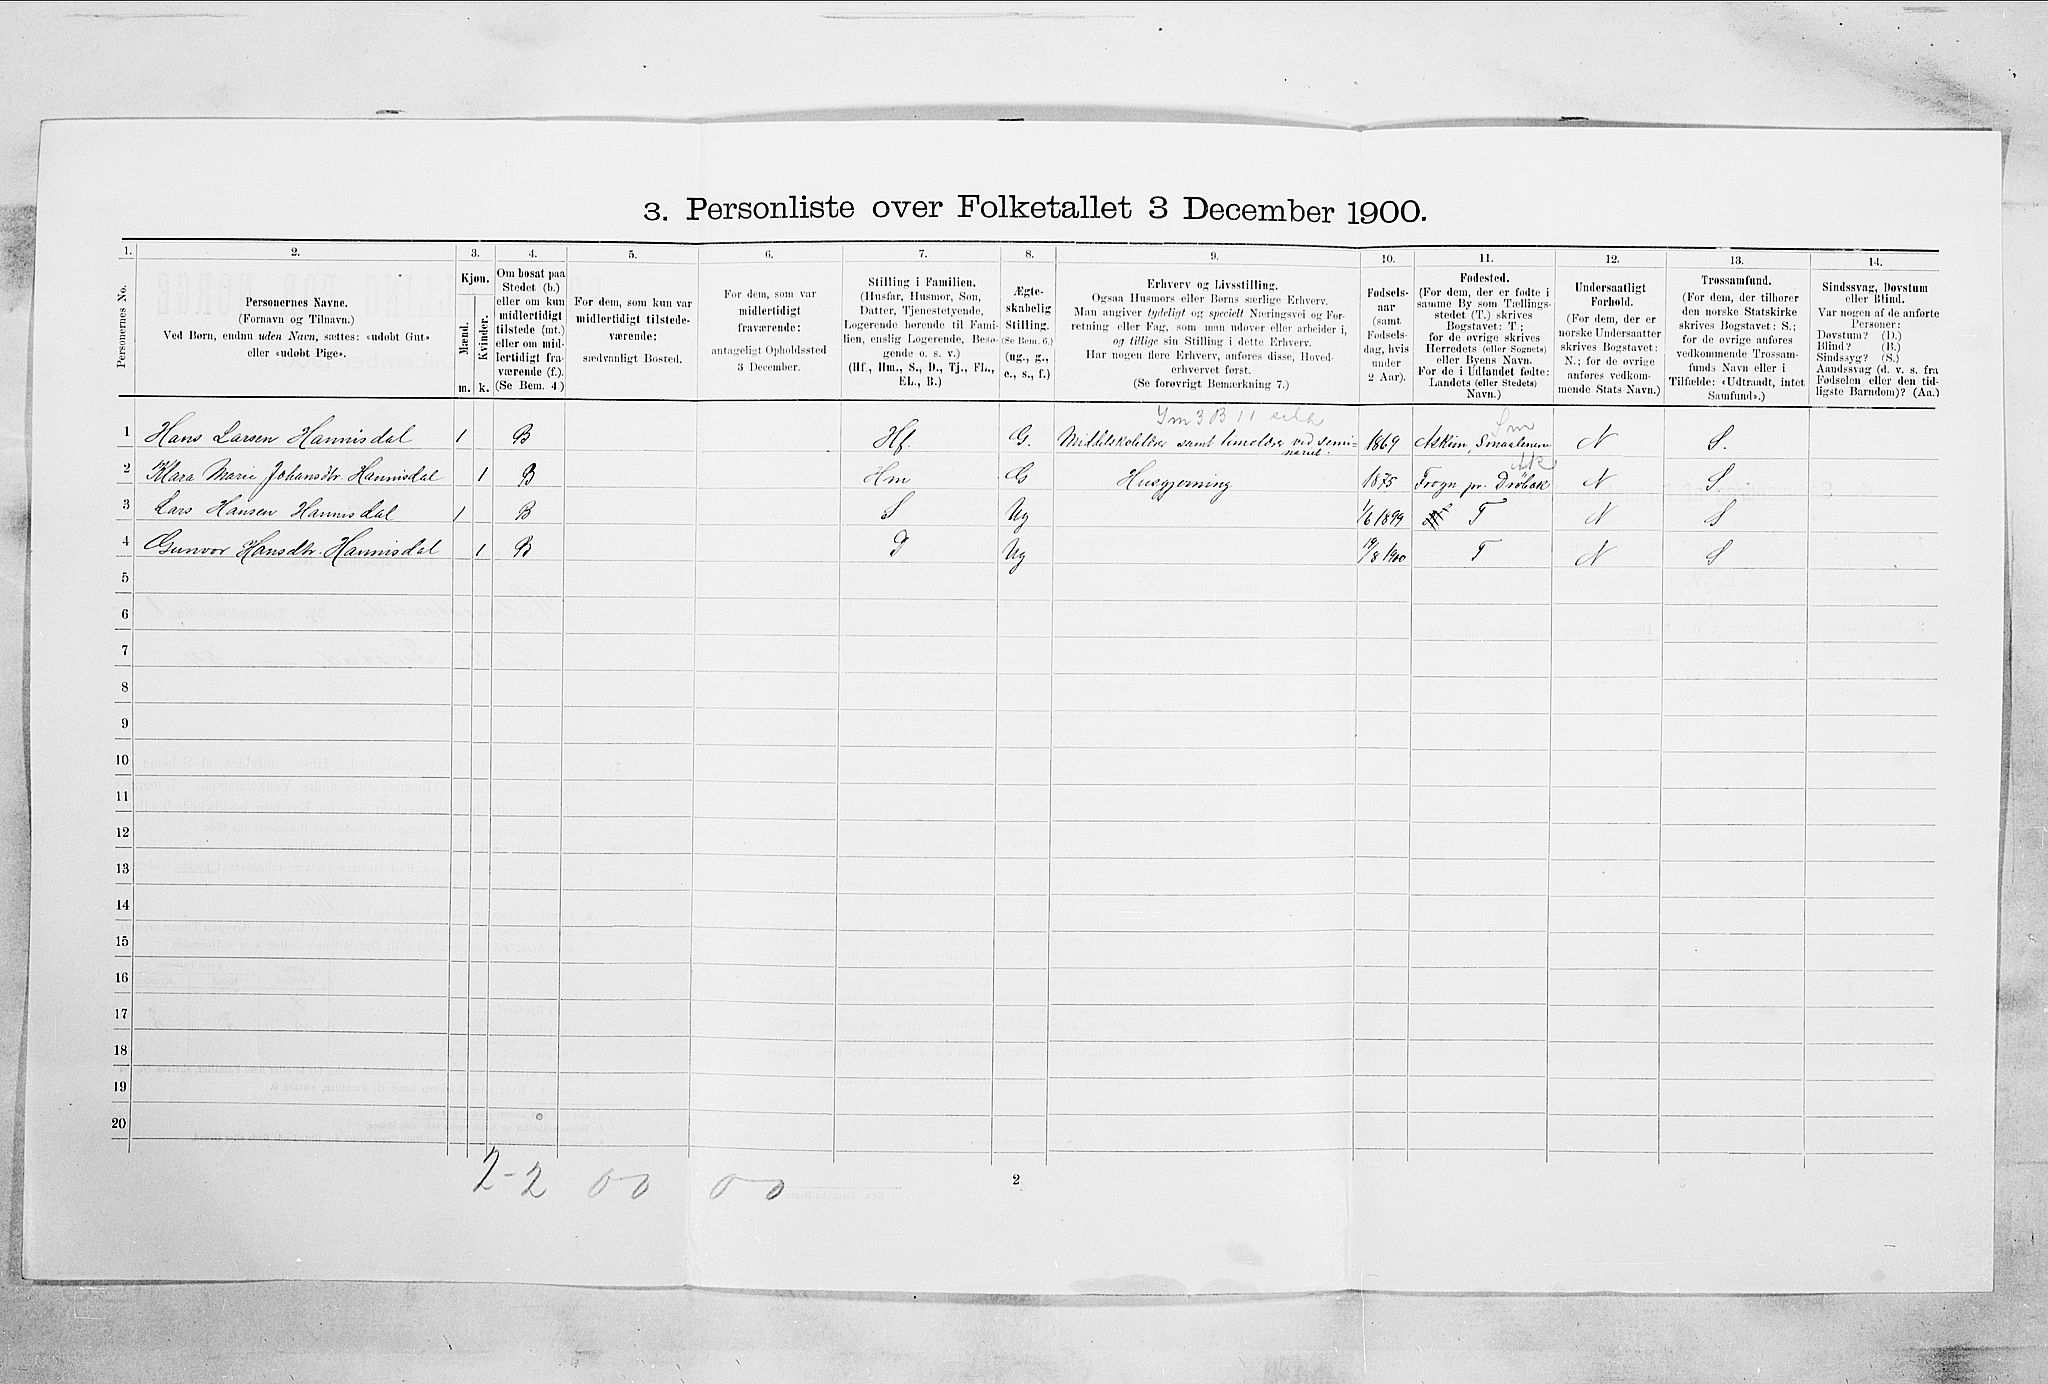 3. Personliste over Folketallet 3 December 1900.
1. 2. 3. 4. 5. 6. 7. 8. 9. 10. 11. 12. 13. 14.
Personernes No.
Personernes Navne.
(Fornavn og Tilnavn.)
Ved Børn, endnu uden Navn, sættes: «udøbt Gut»
eller «udøbt Pige».
Kjøn.
Mænd.
Kvinder.
m. k.
Om bosat paa
Stedet (b.)
eller om kun
midlertidigt
tilstede (mt.)
eller om mid-
lertidigt fra-
værende (f.).
(Se Bem. 4.)
For dem, som kun var
midlertidigt tilstede-
værende:
sædvanligt Bosted.
For dem, som var
midlertidigt
fraværende:
antageligt Opholdssted
3 December.
Stilling i Familien.
(Husfar, Husmor, Søn,
Datter, Tjenestetyende,
Logerende hørende til Fami-
lien, enslig Logerende, Besø-
gende o. s. v.)
(Hf., Hm., S., D., Tj., FL.,
EL., B.)
Ægte-
skabelig
Stilling.
(Se Bem. 6.)
(ug., g.,
e., s., f.)
Erhverv og Livsstilling.
Ogsaa Husmors eller Børns særlige Erhverv.
Man angiver tydeligt og specielt Næringsvei og For-
retning eller Fag, som man udøver eller arbeider i,
og tillige sin Stilling i dette Erhverv.
Har nogen flere Erhverv, anføres disse, Hoved-
erhvervet først.
(Se forøvrigt Bemærkning 7.)
Fødsels-
aar
(samt
Fødsels-
dag, hvis
under
2 Aar).
Fødested.
(For dem, der er fødte i
samme By som Tællings-
stedet (T.) skrives
Bogstavet: T;
for de øvrige skrives
Herredets (eller Sognets)
eller Byens Navn.
For de i Udlandet fødte:
Landets (eller Stedets)
Navn.)
Undersaatligt
Forhold.
(For dem, der er
norske Undersaatter
skrives Bogstavet:
N.; for de øvrige
anføres vedkom-
mende Stats Navn.)
Trossamfund.
(For dem, der tilhører
den norske Statskirke
skrives Bogstavet: S.;
for de øvrige anføres
vedkommende Trossam-
funds Navn eller i
Tilfælde: «Udtraadt, intet
Samfund».)
Sindssvag, Døvstum
eller Blind.
Var nogen af de anførte
Personer:
Døvstum? (D.)
Blind? (B.)
Sindssyg? (S.)
Aandssvag (d. v. s. fra
Fødselen eller den tid-
ligste Barndom)? (Aa.)
Sm
1 Hans Larsen Hannisdal 1 B Hf. G. Middelskolelærer samt timelærer ved semi- 1869 Askim, Smaalenene N S.
nariet.
Ak
2 Klara Marie Johansdtr Hannisdal 1 B Hm G Husgjerning 1875 Frogn pr. Drøbak N S
3 Lars Hansen Hannisdal 1 B S Ug 1/6 1899 T N S
4 Gunvor Hansdtr. Hannisdal 1 B D Ug 19/8 1900 T N S
5
6
7
8
9
10
11
12
13
14
15
16
17
18
19
20
2-2 00 00
2